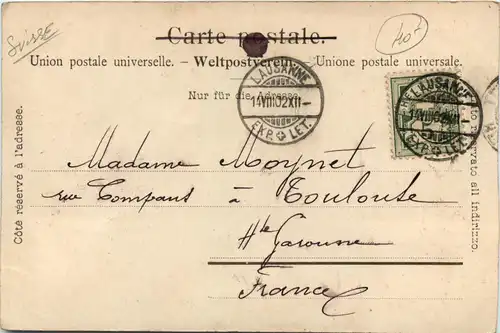 Suisse
40+
Carte postale.
Union postale universelle. – Weltpostverein. – Unione postale universale.
Nur für die Adresse.
LAUSANNE
14.VIII.02.XII–
EXP. LET.
LAUSANNE
14.VIII.02.XII–
EXP. LET.
Côté réservé à l'adresse.
Madame Moynet
rue Compans à Toulouse
Hte Garonne
France
Lato riservato all indirizzo.